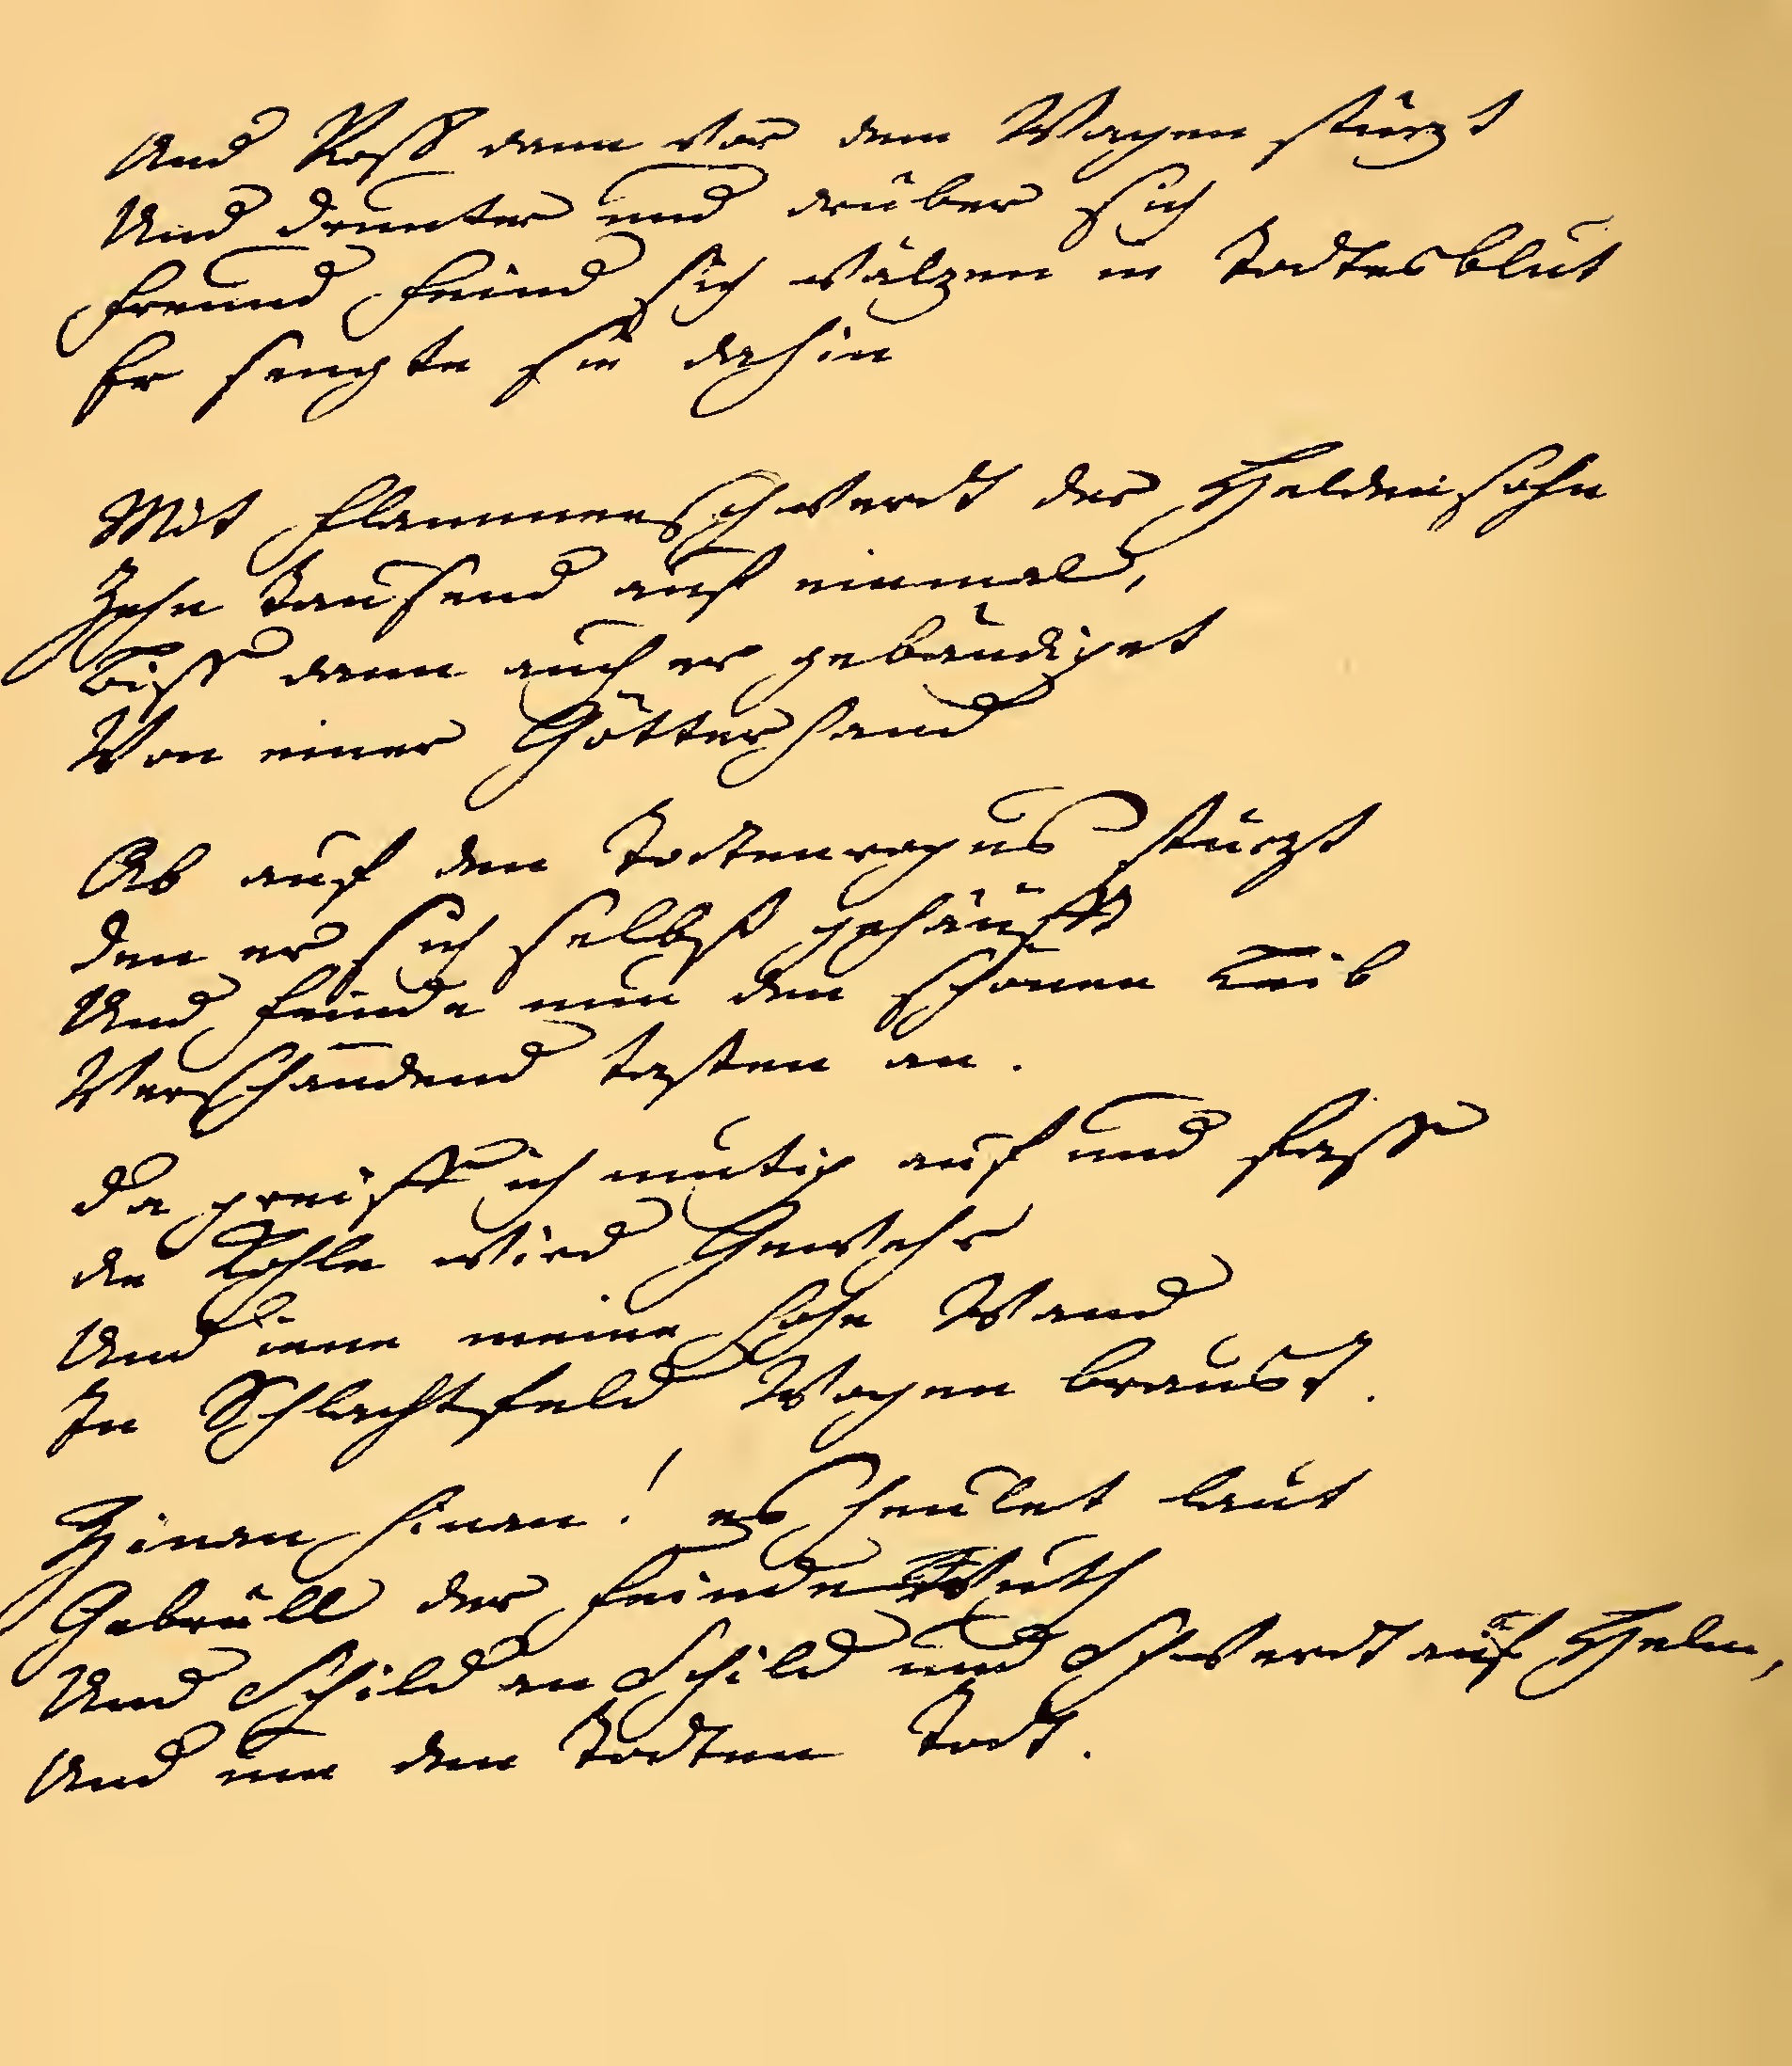 Und Ross dann vor dem Wagen stürzt
Und drunter und drüber sich
Freund Feind sich wälzen in Todtesblut
Er sengte sie dahin
Mit Flammenschwerdt der Heldensohn
Zehn tausend auf einmal,
Biss dann auch er gebändiget
Von einer Götterhand
Ab auf den Todtenrogus stürzt
Den er sich selbst gehäufft
Und Feinde nun den schönen Leib
Verschändend tasten an.
Da greiff ich mutig auf und fass
Die Kohle wird Gewehr
Und iene meine hohe Wand
In Schlachtfeld Wogen braust.
Hinan hinan! es heulet laut
Gebrüll der Feinde Wuth
Und Schild an Schild und Schwerdt auf Helm,
Und um den Todten Todt.